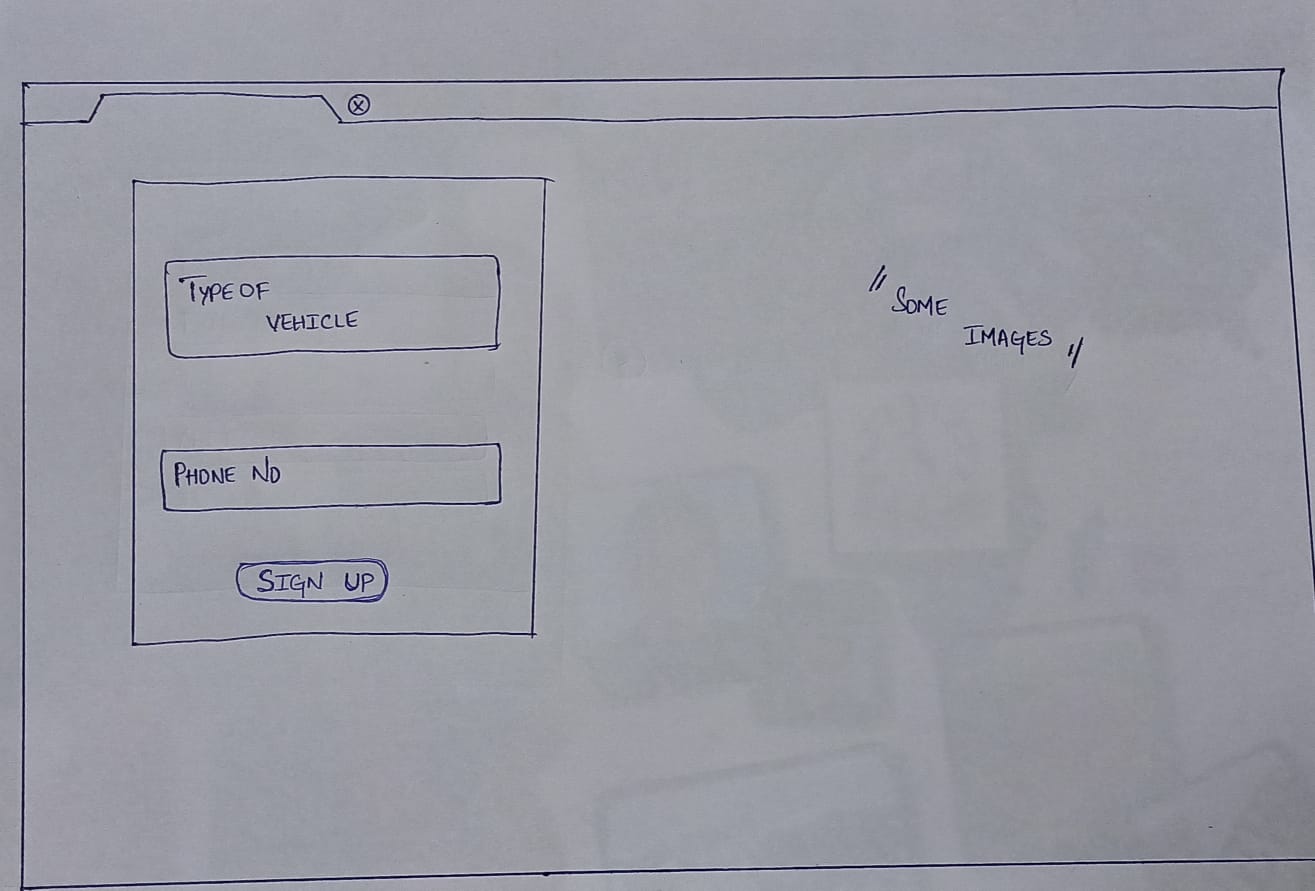 TYPE OF
VEHICLE
PHONE NO
SIGN UP
"SOME
IMAGES"